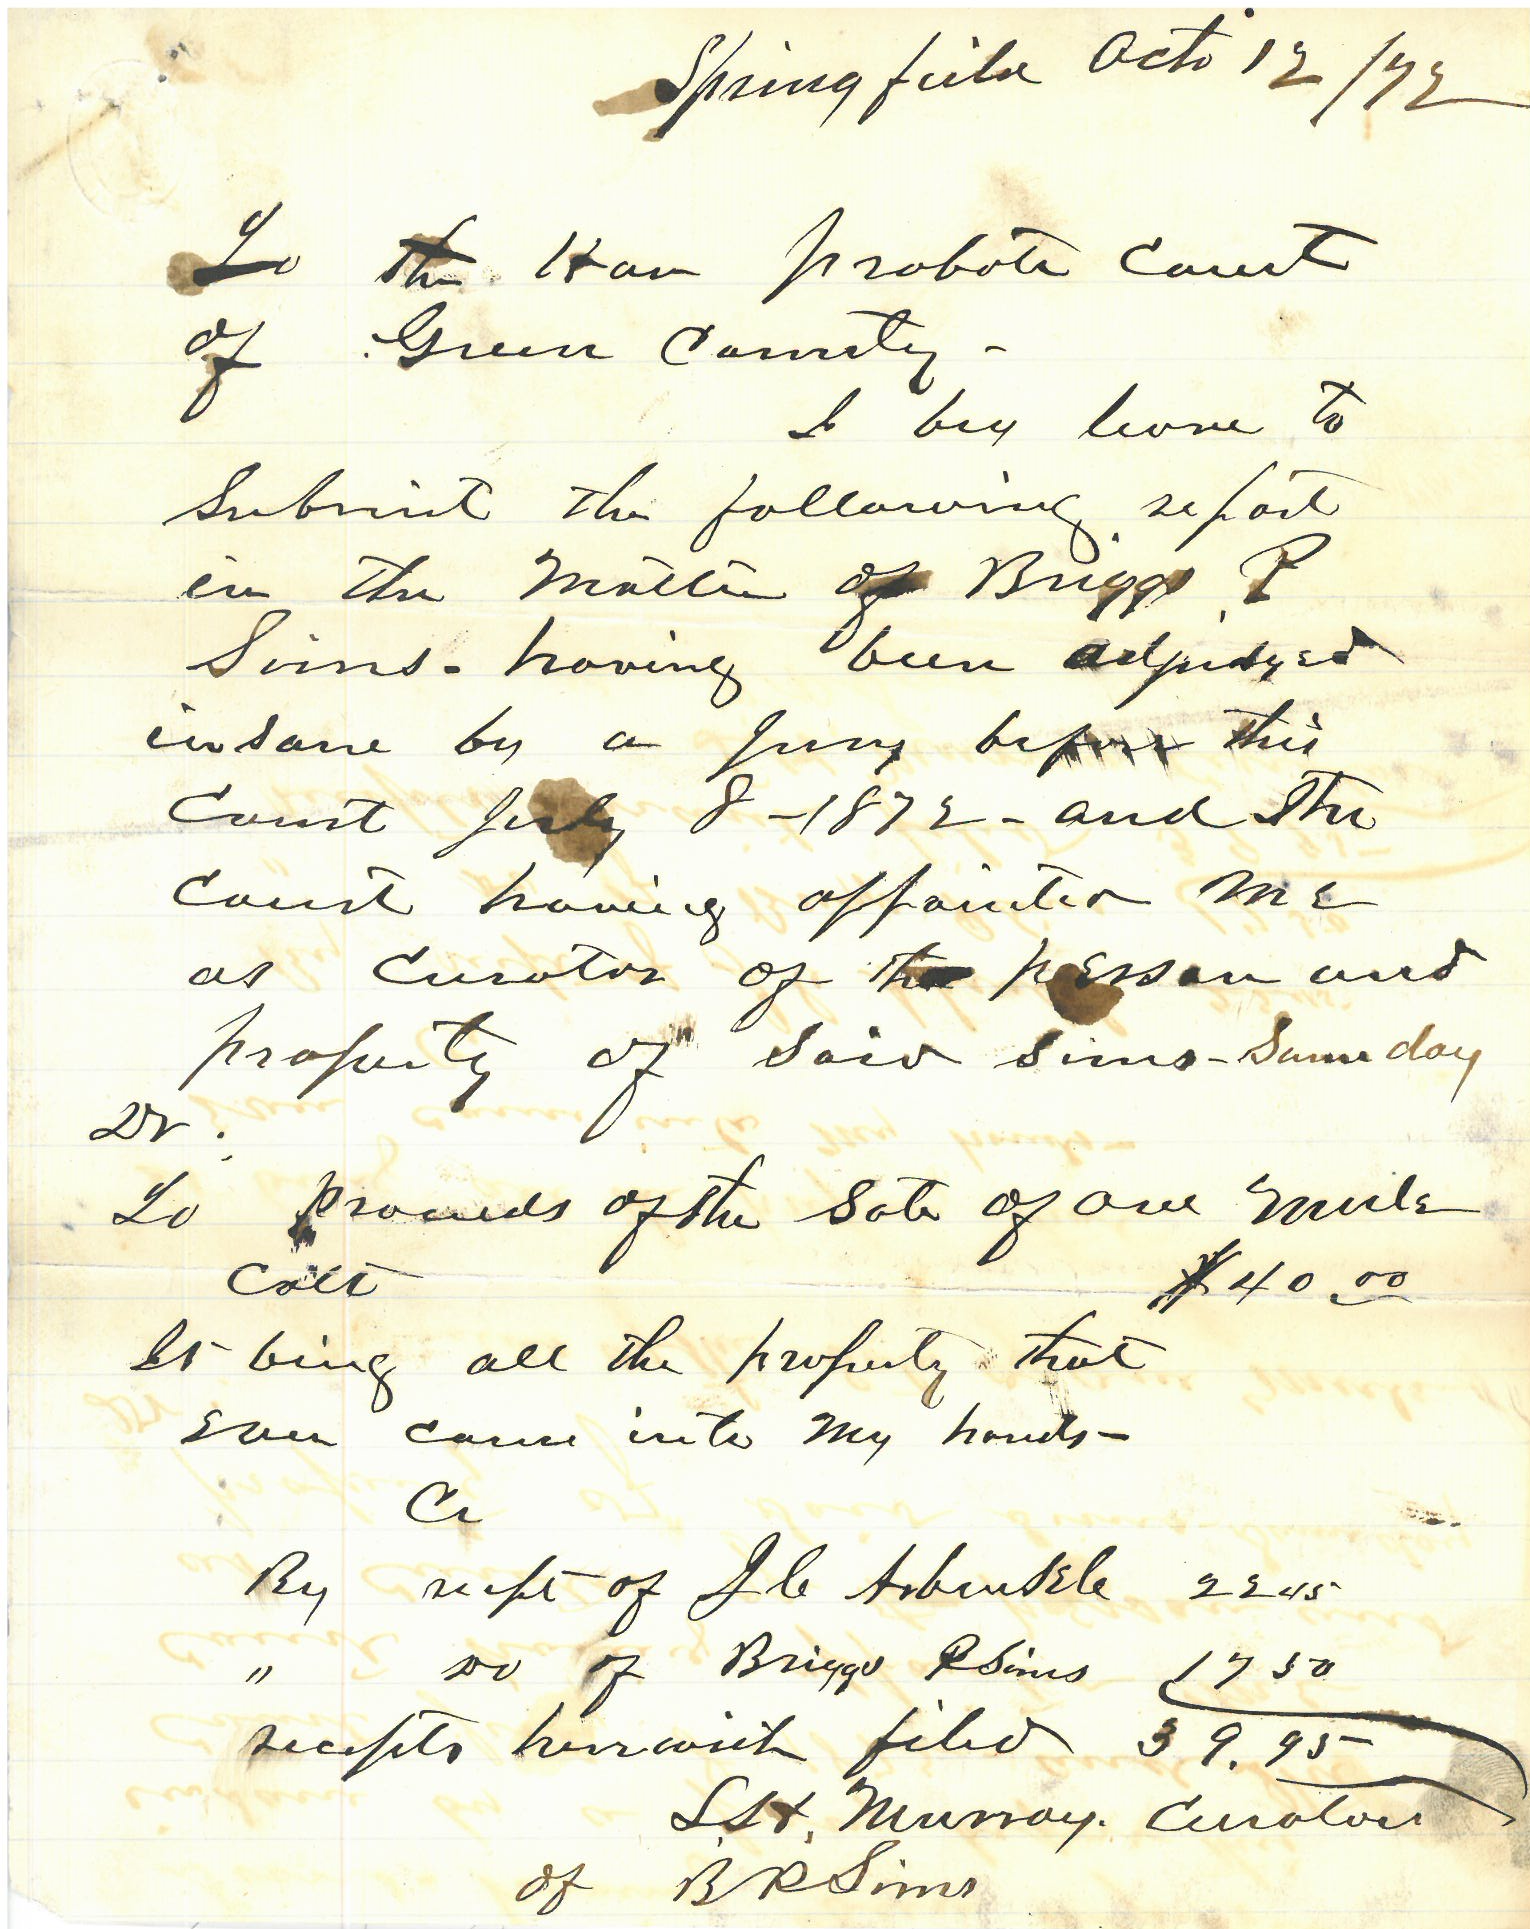 Springfield Octo 12/72
To the Hon probate Court
of Green County -
I beg leave to
Submit the following report
in the Matter of Briggs P
Sims - having been adjudged
insane by a Jury before this
Court July 8 - 1872 - and the
Court having appointed me
as Curator of the person and
property of Said Sims - Same day
Dr.
To proceeds of the Sale of one Mule
Colt $40.00
It being all the property that
ever came into my hands -
Cr
By recpt of Arbuckle 22 45
" do of Briggs P Sims 17 50
recepts herewith filed 39.95
Murray. Curator
of B R Sims